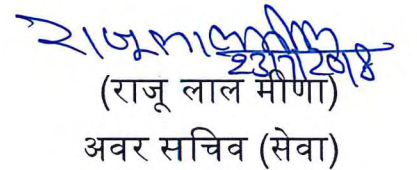 राजूलाल मीणा
23/7/2018
(राजू लाल मीणा)
अवर सचिव (सेवा)